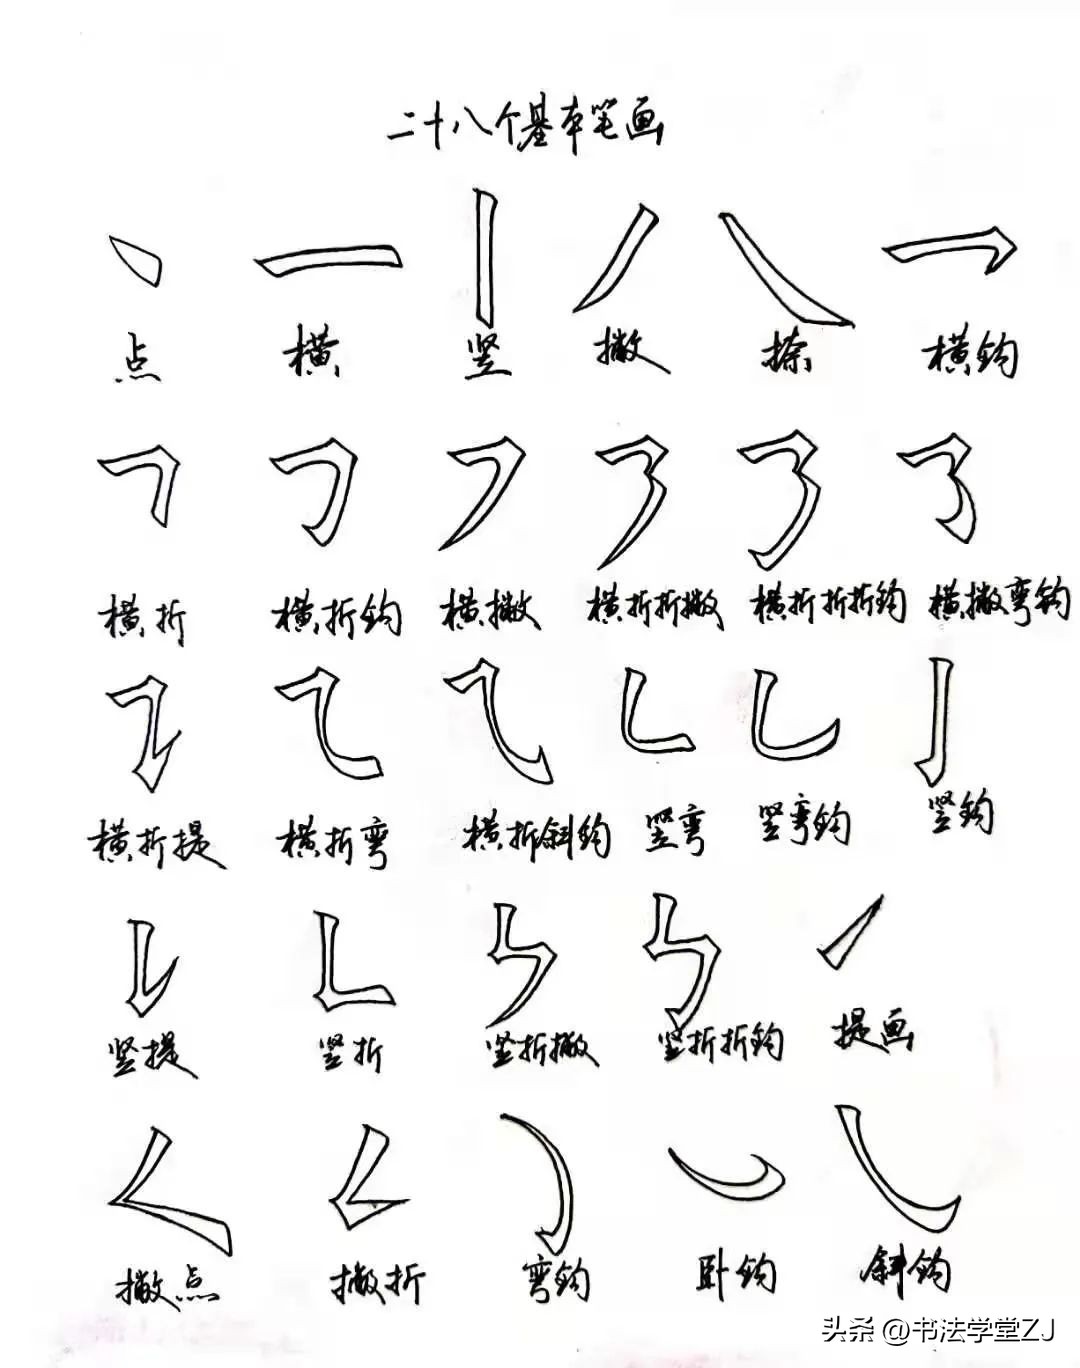 二十八个基本笔画
点 横 竖 撇 捺 横钩
横折 横折钩 横撇 横折折撇 横折折折钩 横撇弯钩
横折提 横折弯 横折斜钩 竖弯 竖弯钩 竖钩
竖提 竖折 竖折撇 竖折折钩 提画
撇点 撇折 弯钩 卧钩 斜钩
头条 @书法学堂ZJ